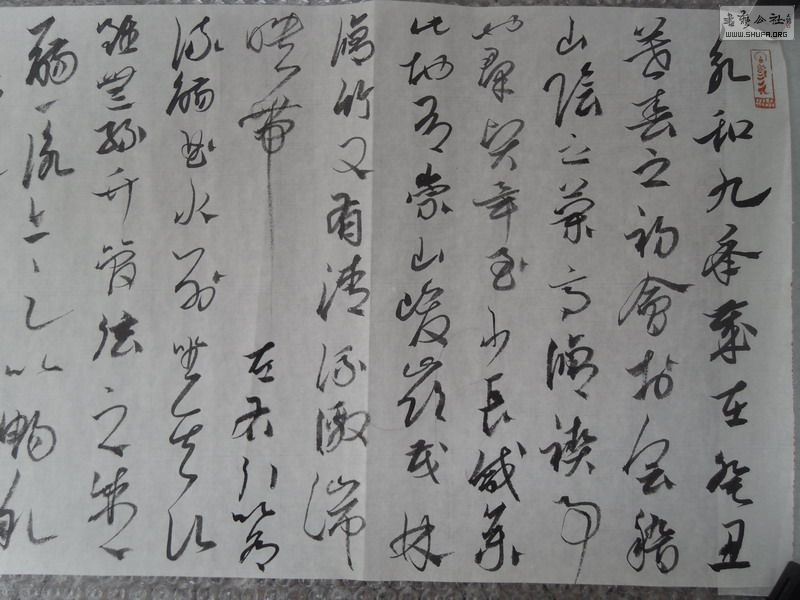 永和九年歲在癸丑
暮春之初會於會稽
山陰之蘭亭脩禊事
也群賢畢至少長咸集
此地有崇山峻嶺茂林
脩竹又有清流激湍
映帶左右引以為
流觴曲水列坐其次
雖無絲竹管弦之盛
觴一詠亦足以暢敘
書法公社
www.SHUFA.ORG